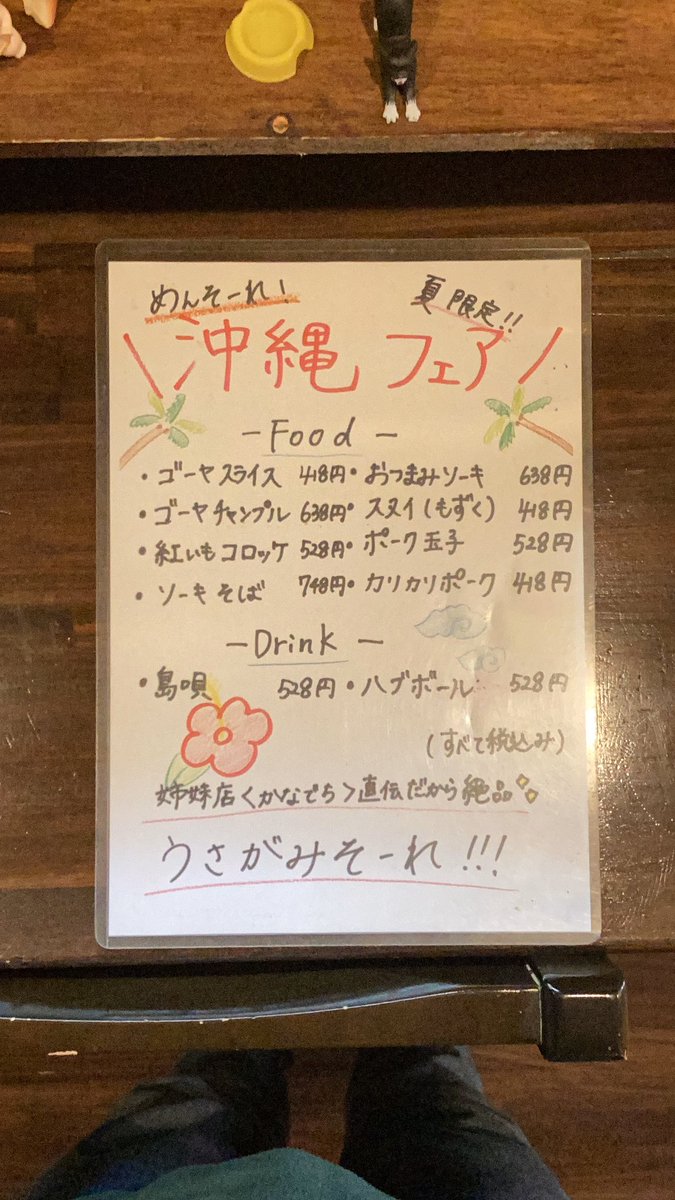 めんそーれ！
夏限定!!
\沖縄フェア/
-Food-
・ゴーヤスライス 418円
・おつまみソーキ 638円
・ゴーヤチャンプル 638円
・スヌイ(もずく) 418円
・紅いもコロッケ 528円
・ポーク玉子 528円
・ソーキそば 748円
・カリカリポーク 418円
-Drink-
・島唄 528円
・ハブボール 528円
(すべて税込み)
姉妹店<かなでち>直伝だから絶品
うさがみそーれ!!!